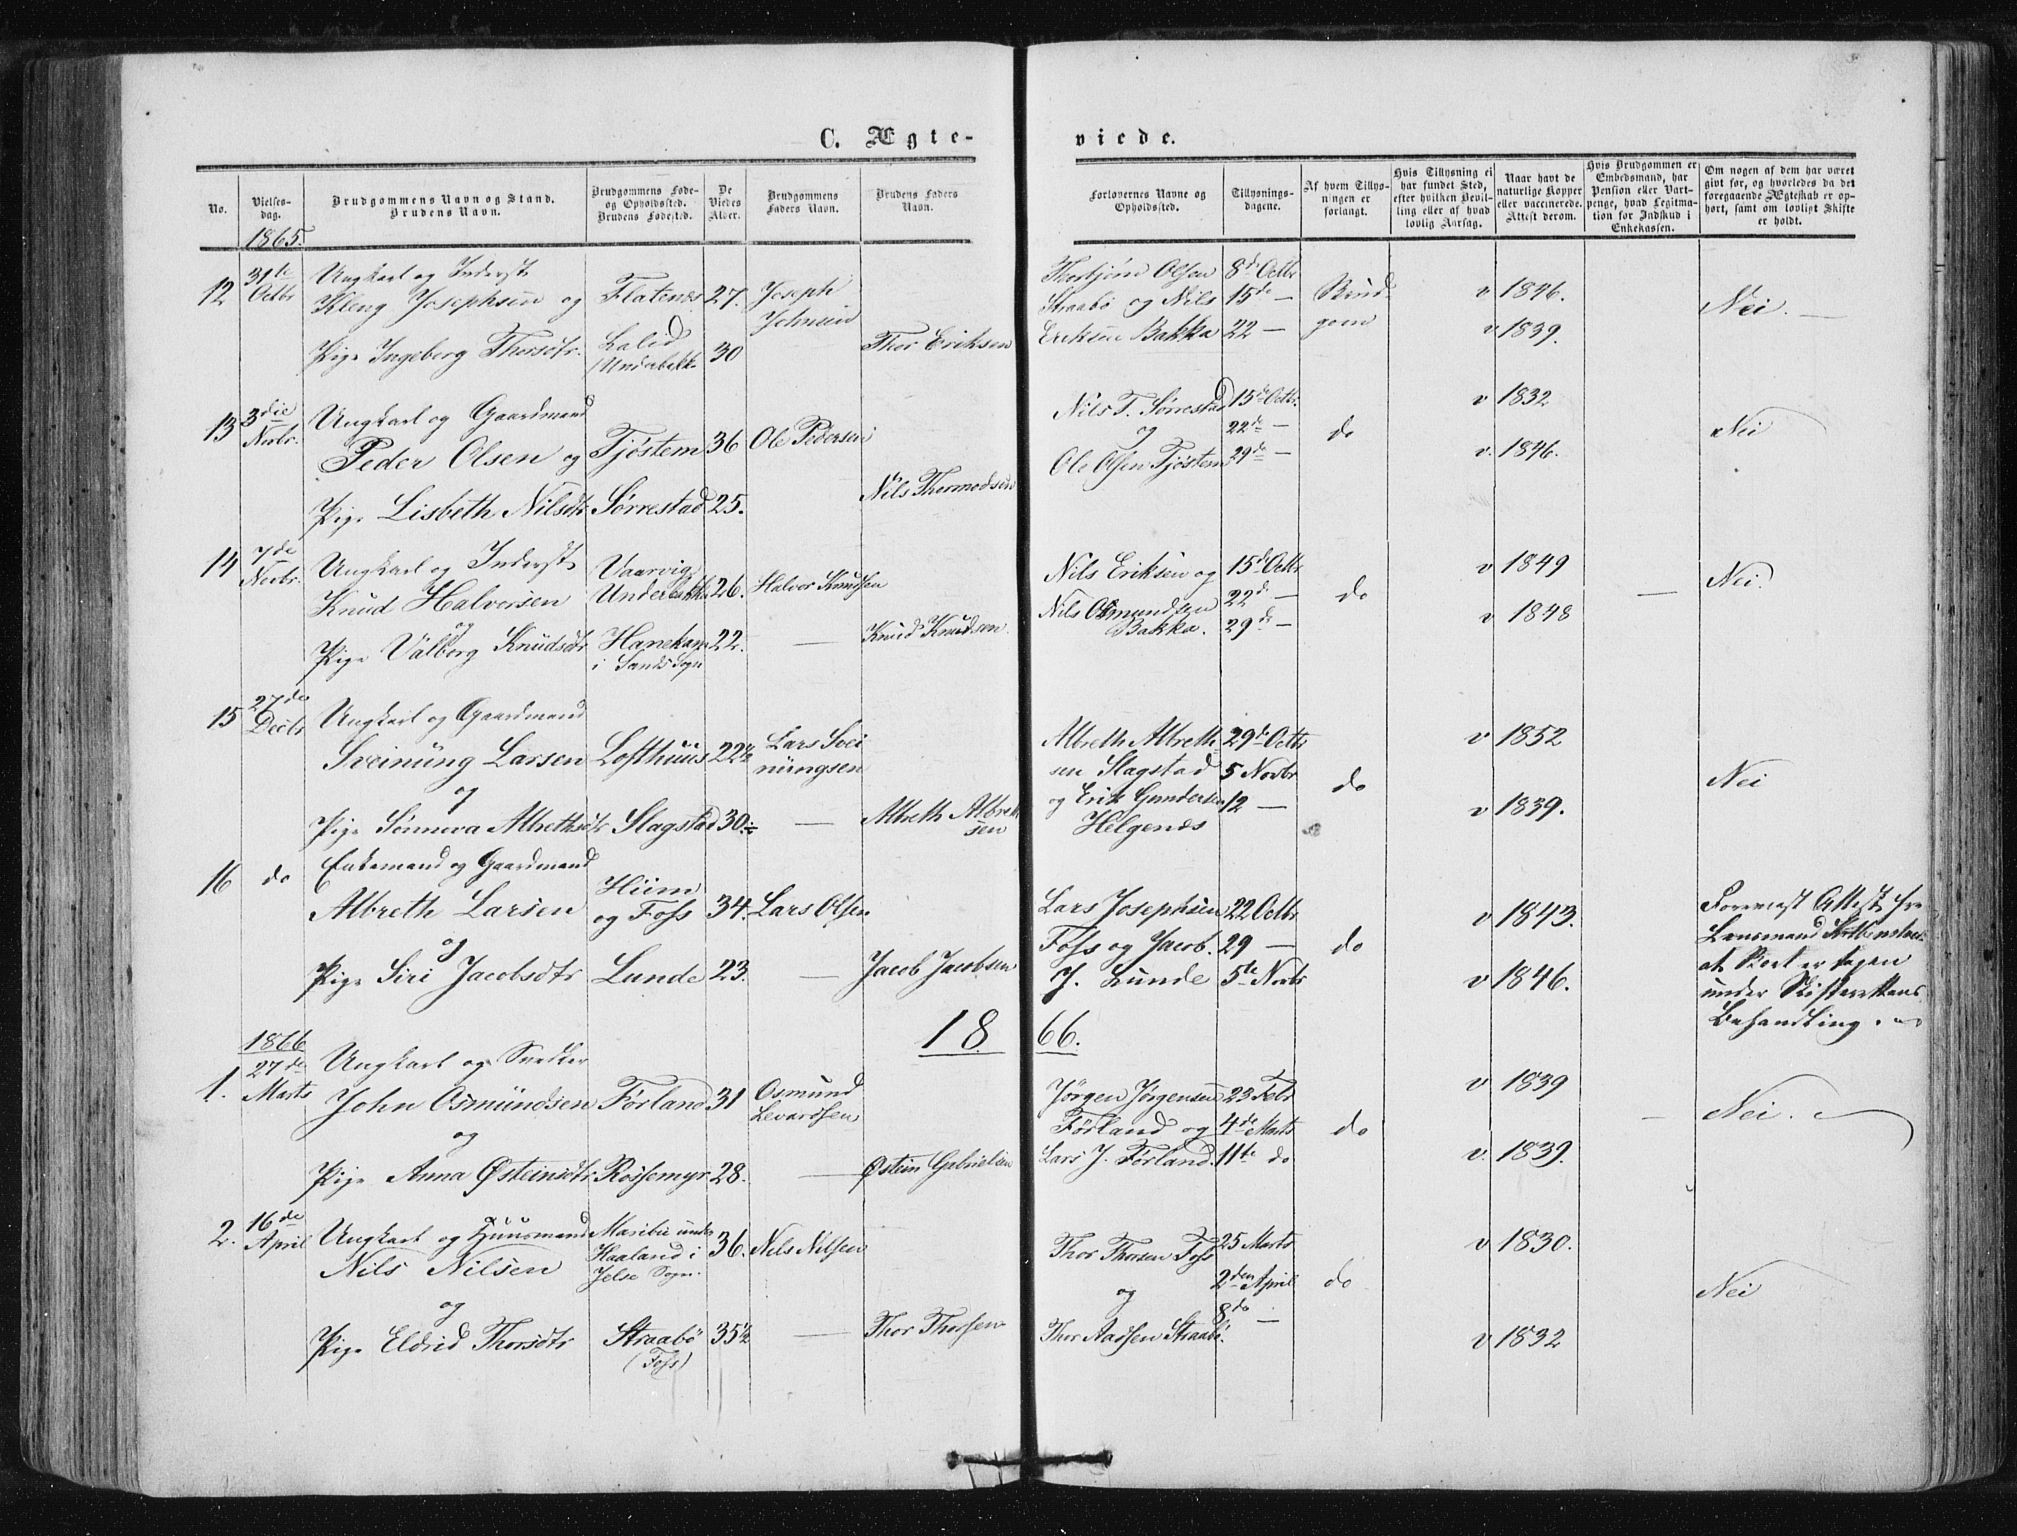 C. Ægte-
viede.
No.
Vielses-
dag.
Brudgommens Navn og Stand.
Brudens Navn.
Brudgommens Føde-
og Opholdssted.
Brudens Fødested.
De
Viedes
Alder.
Brudgommens
Faders Navn.
Brudens Faders
Navn.
Forlovernes Navne og
Opholdssted.
Tillysnings-
dagene.
Af hvem Tillys-
ningen er
forlangt.
Hvis Tillysning ei
har fundet Sted,
efter hvilken Bevil-
ling eller af hvad
lovlig Aarsag.
Naar havt de
naturlige Kopper
eller vaccinerede.
Attest derom.
Hvis Brudgommen er
Embedsmand, har
Pension eller Vart-
penge, hvad Legitima-
tion for Indskud i
Enkekassen.
Om nogen af dem har været
givt før, og hvorledes da det
foregaaende Ægteskab er op-
hørt, samt om lovligt Skifte
er holdt.
1865.
12
31te
Octbr
Ungkarl og Inderst
Kleng Josephsen og
Pige Ingeborg Thorsdtr.
Flatenæs
Laled
(Underbakk
27.
30
Joseph
Johnsen
Thor Eriksen
Thorbjørn Olsen
Straabø og Nils
Eriksen Bakka
8de Octbr
15de —
22 —
Brud-
gom
v 1846.
v 1839.
Nei. —
13
3die
Novbr.
Ungkarl og Gaardmand
Peder Olsen og
Pige Lisbeth Nilsdtr
Tjøstem
Sørrestad
36
25.
Ole Pedersen
Nils Thormodsen
Nils T. Sørrestad
og
Ole Olsen Tjøstem
15de Octbr.
22de —
29de —
do
v 1832
v. 1846.
Nei
14
7de
Novbr.
Ungkarl og Inderst
Knud Halvorsen
og
Pige Valborg Knudsdtr
Vaarvig
Underbakka
Hanekam
i Sands Sogn
26.
22.
Halvor Knudsen
—
Knud Knudsen.
Nils Eriksen og
Nils Osmundsen
Bakka.
15de Octbr
22de —
29de —
do
v 1849
v 1848
—
Nei.
15
27de
Decbr
Ungkarl og Gaardmand
Sveinung Larsen
og
Pige Sønneva Albrethsdtr
Lofthuus
Slagstad
22½
30.
Lars Svei
nungsen
—
Albreth Albreth
sen
Albreth Albreth-
sen Slagstad
og Erik Gundersen
Helgenæs
29de Octbr
5 Novbr
12 —
do
v 1852
v 1839.
Nei
16
do
Enkemand og Gaardmand
Albreth Larsen
og
Pige Siri Jacobsdtr
Hiim
og Foss
Lunde
34.
23.
Lars Olsen
—
Jacob Jacobsen
Lars Josephsen
Foss og Jacob.
J. Lunde
22 Octbr
29 —
5te Novbr
do
v 1843.
v 1846.
Forevist Attest fra
Lensmand
at Boet er tagen
under Skifterettens
Behandling.
1866.
1866
1.
27de
Marts
Ungkarl og Snedker
John Osmundsen
og
Pige Anna Østeinsdtr
Førland
Røssemyr
31
28.
Osmund
Levardsen
—
Østein Gabrielsen
Jørgen Jørgensen
Førland og
Lars J. Førland.
23 Febr
4de Marts
11te do
do
v 1839
v. 1839.
—
Nei.
2.
16de
April
Ungkarl og Huusmand
Nils Nilsen
og
Pige Eldrid Thorsdtr
Maribu under
Haaland i
Jelse Sogn.
Straabø
(Foss)
36.
35½
Nils Nilsen
—
Thor Thorsen
Thor Thorsen Foss
og
Thor Aadsen Straabø.
25 Marts
2den April
8de —
do
v 1830.
v 1832
Nei